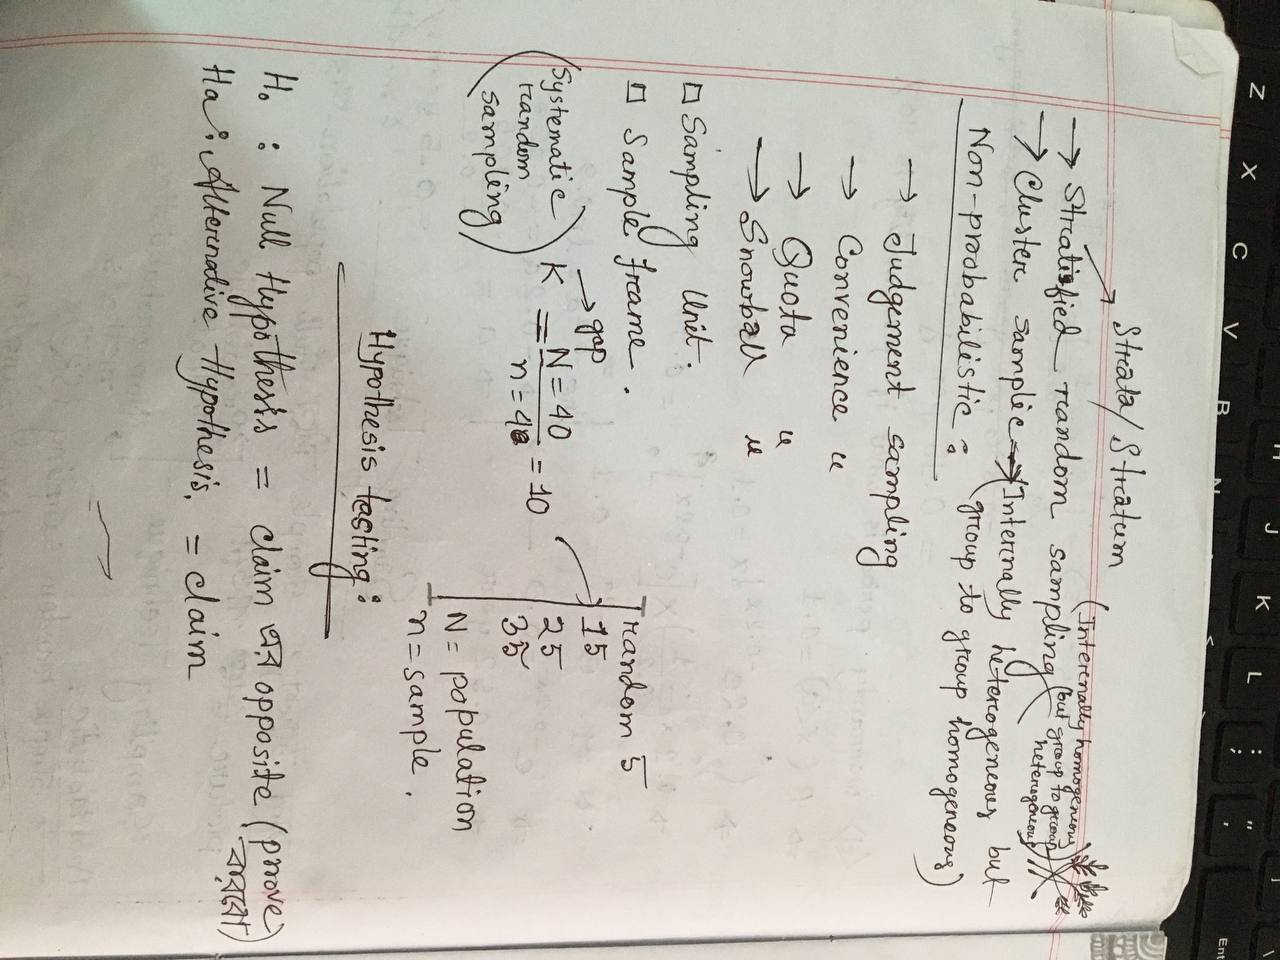 Strata/Stratum
→ Stratisfied random sampling (Internally homogeneous
but group to group
heterogeneous)
→ Cluster samplic → (Internally heterogeneous but
group to group homogeneous)
Non-proobabilistic :
→ Judgement sampling
→ Convenience "
→ Quota "
→ Snowball "
□ Sampling Unit.
□ Sample frame.
(Systematic
random
sampling)
→ gap
K = N = 40 / n = 4 = 10
random 5
15
25
35
N = population
n = sample.
Hypothesis testing :
H₀ : Null Hypothesis = claim এর opposite (prove
করবো)
Ha : Alternative Hypothesis. = claim
Z X C V B N H J K L : ; " ' Ent